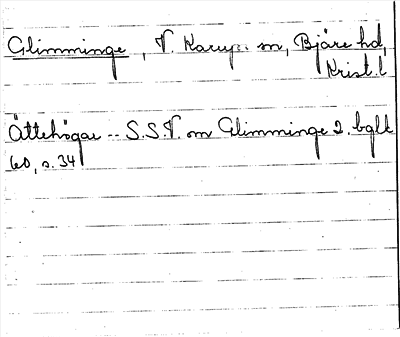 Glimminge, V. Karups sn, Bjäre hd,
Krist. l
Ättehögar -- S.S.V. om Glimminge 2. bglt
60, s. 34